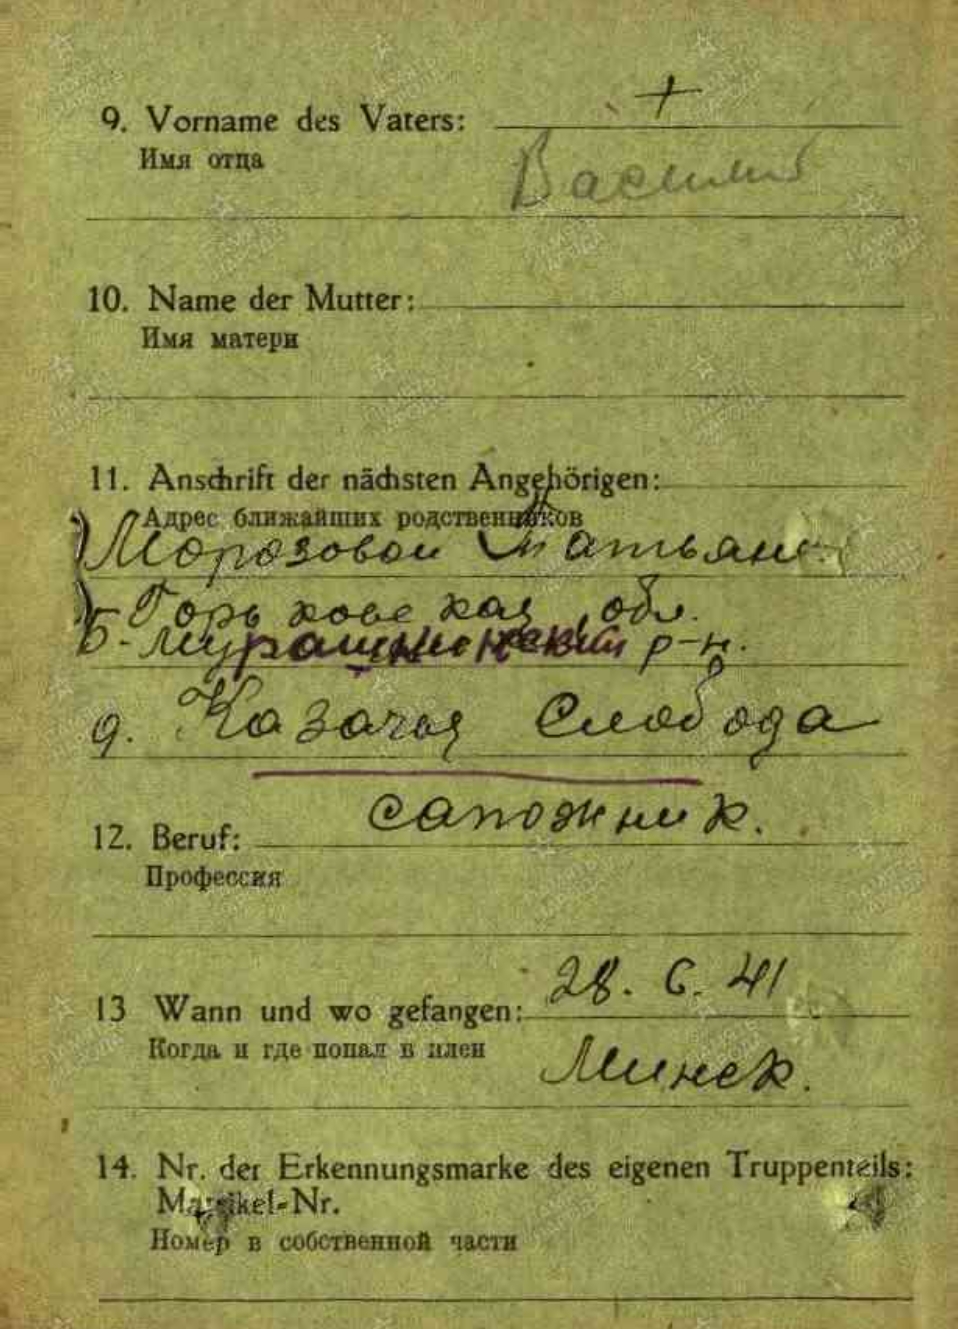 9. Vorname des Vaters: +
Имя отца Василий
10. Name der Mutter:
Имя матери
11. Anschrift der nächsten Angehörigen:
Адрес ближайших родственников
Морозовой Татьяне
Горьковская обл.
Б-Мурашкинский р-н.
д. Казачья Слобода
12. Beruf: сапожник.
Профессия
13 Wann und wo gefangen: 28. 6. 41
Когда и где попал в плен Минск.
14. Nr. der Erkennungsmarke des eigenen Truppenteils:
Matrikel-Nr.
Номер в собственной части